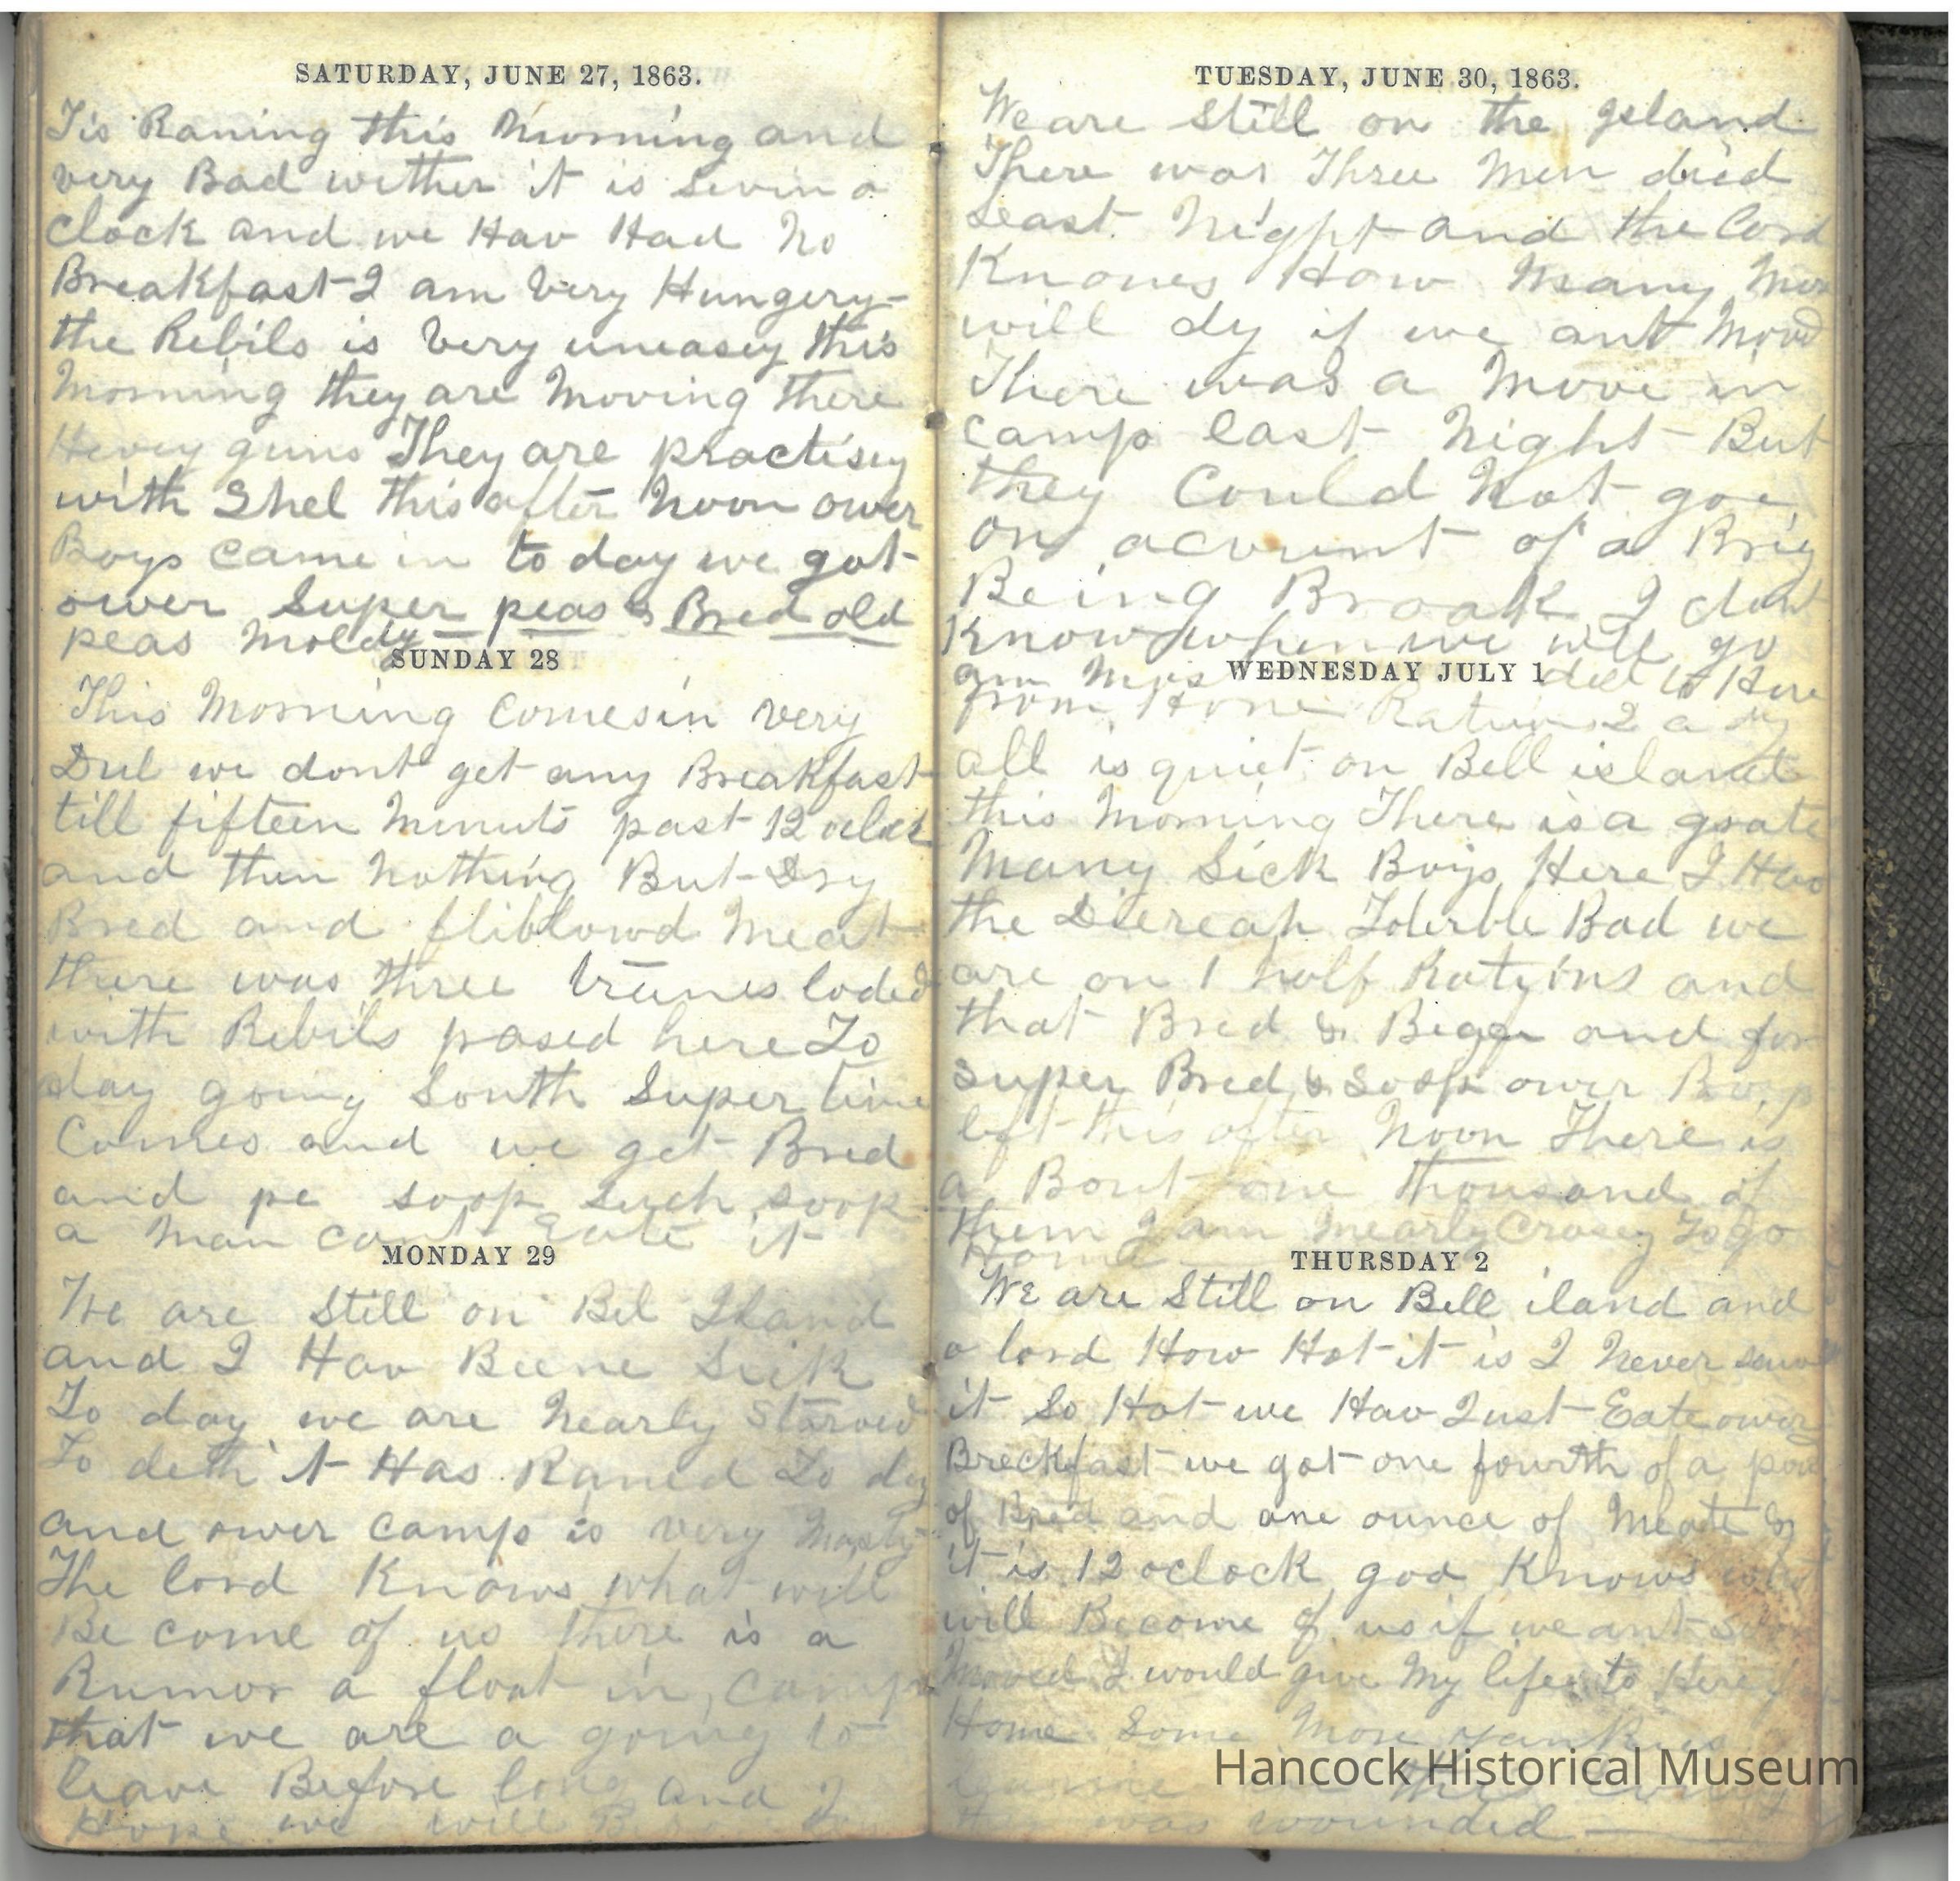 SATURDAY, JUNE 27, 1863.
Tis Raning this Morning and
very Bad wether it is Sevin o
clock and we Hav Had No
Breakfast I am very Hungery
the Rebils is very uneasey this
Morning they are Moving there
Hevey guns They are practisey
with Shel this after Noon ower
Boys came in to day we got
ower Super peas & Bred old
peas Moldy
SUNDAY 28
This Morning Comes in very
Dul we dont get any Breakfast
till fifteen Minuts past 12 oclock
and then Nothing But Dry
Bred and fliblowd Meat
there was three tranes loded
with Rebils pased here To
day going South Super time
Comes and we get Bred
and pe soop Such soop
a Man cant Eate it
MONDAY 29
We are Still on Bel Iland
and I Hav Beene Sick
To day we are Nearly Starved
To deth it Has Raned To day
and ower camp is very Nasty
The lord Knows what will
Be come of us there is a
Rumor a float in Camp
that we are a going to
leave Before long and I
Hope we will
TUESDAY, JUNE 30, 1863.
We are Still on the Island
There was Three Men died
Least Night and the Lord
Knones How Many Men
will dy if we ant Movd
There was a Move in
camp Last Night But
they Could Not goe
on acount of a Brig
Being Broak I dont
Know when we will go
WEDNESDAY JULY 1
from Home Rations 2 a day
all is quiet on Bell island
this Morning There is a grate
Many Sick Boys Here I Hav
the Diereah Tolerble Bad we
are on 1 half Rations and
that Bred & Beggn and for
Super Bred & Soop ower Boys
left this after Noon There is
a Bout one thousand of
them I am Nearly Crasey To go
Home
THURSDAY 2
We are Still on Bell iland and
o lord How Hot it is I Never saw
it So Hot we Hav Just Eate ower
Breckfast we got one fourth of a
of Bred and one ounce of Meate &
it is 12 oclock god Knows
will Become of us if we ant
Moved I would give My life to
Home Some More yankees
was wounded
Hancock Historical Museum